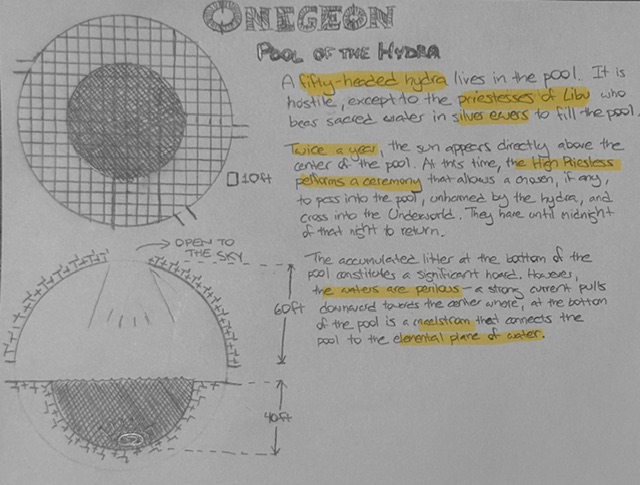 ONEGEON
POOL OF THE HYDRA
A fifty-headed hydra lives in the pool. It is
hostile, except to the priestesses of Libu who
bear sacred water in silver ewers to fill the pool.
Twice a year, the sun appears directly above the
center of the pool. At this time, the High Priestess
performs a ceremony that allows a chosen, if any,
to pass into the pool, unharmed by the hydra, and
cross into the Underworld. They have until midnight
of that night to return.
10ft
The accumulated litter at the bottom of the
pool constitutes a significant hoard. However,
the waters are perilous - a strong current pulls
downward towards the center where, at the bottom
of the pool is a maelstrom that connects the
pool to the elemental plane of water.
→ OPEN TO
THE SKY
60ft
40ft